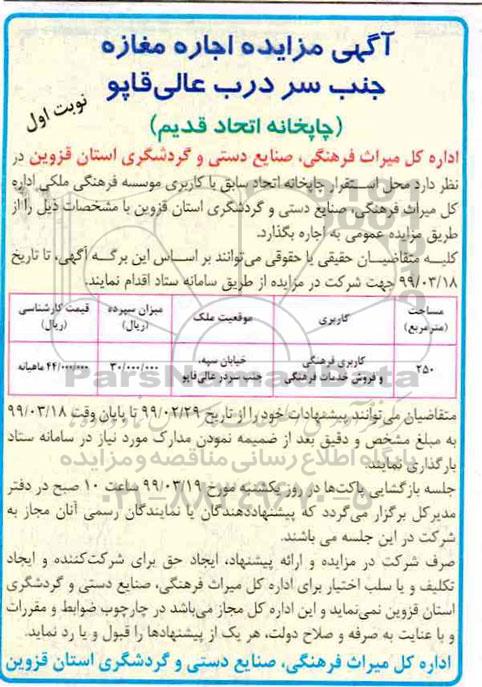 آگهی مزایده اجاره مغازه
جنب سر درب عالی‌قاپو
نوبت اول
(چاپخانه اتحاد قدیم)
اداره کل میراث فرهنگی، صنایع دستی و گردشگری استان قزوین در
نظر دارد محل استقرار چاپخانه اتحاد سابق با کاربری موسسه فرهنگی ملکی اداره
کل میراث فرهنگی، صنایع دستی و گردشگری استان قزوین با مشخصات ذیل را از
طریق مزایده عمومی به اجاره بگذارد.
کلیه متقاضیان حقیقی یا حقوقی می‌توانند بر اساس این برگه آگهی، تا تاریخ
۹۹/۰۳/۱۸ جهت شرکت در مزایده از طریق سامانه ستاد اقدام نمایند.
مساحت (مترمربع) کاربری موقعیت ملک میزان سپرده (ریال) قیمت کارشناسی (ریال)
۲۵۰ کاربری فرهنگی و فروش خدمات فرهنگی خیابان سپه، جنب سردر عالی‌قاپو ۳۰/۰۰۰/۰۰۰ ۴۴/۰۰۰/۰۰۰ ماهیانه
متقاضیان می‌توانند پیشنهادات خود را از تاریخ ۹۹/۰۲/۲۹ تا پایان وقت ۹۹/۰۳/۱۸
به مبلغ مشخص و دقیق بعد از ضمیمه نمودن مدارک مورد نیاز در سامانه ستاد
بارگذاری نمایند.
جلسه بازگشایی پاکت‌ها در روز یکشنبه مورخ ۹۹/۰۳/۱۹ ساعت ۱۰ صبح در دفتر
مدیرکل برگزار می‌گردد که پیشنهاددهندگان یا نمایندگان رسمی آنان مجاز به
شرکت در این جلسه می باشند.
صرف شرکت در مزایده و ارائه پیشنهاد، ایجاد حق برای شرکت‌کننده و ایجاد
تکلیف و یا سلب اختیار برای اداره کل میراث فرهنگی، صنایع دستی و گردشگری
استان قزوین نمی‌نماید و این اداره کل مجاز می‌باشد در چارچوب ضوابط و مقررات
و با عنایت به صرفه و صلاح دولت، هر یک از پیشنهادها را قبول و یا رد نماید.
اداره کل میراث فرهنگی، صنایع دستی و گردشگری استان قزوین
ParsNamadData
پایگاه اطلاع رسانی مناقصه و مزایده
۰۲۱-۸۸۳۴۹۶۷۰-۵